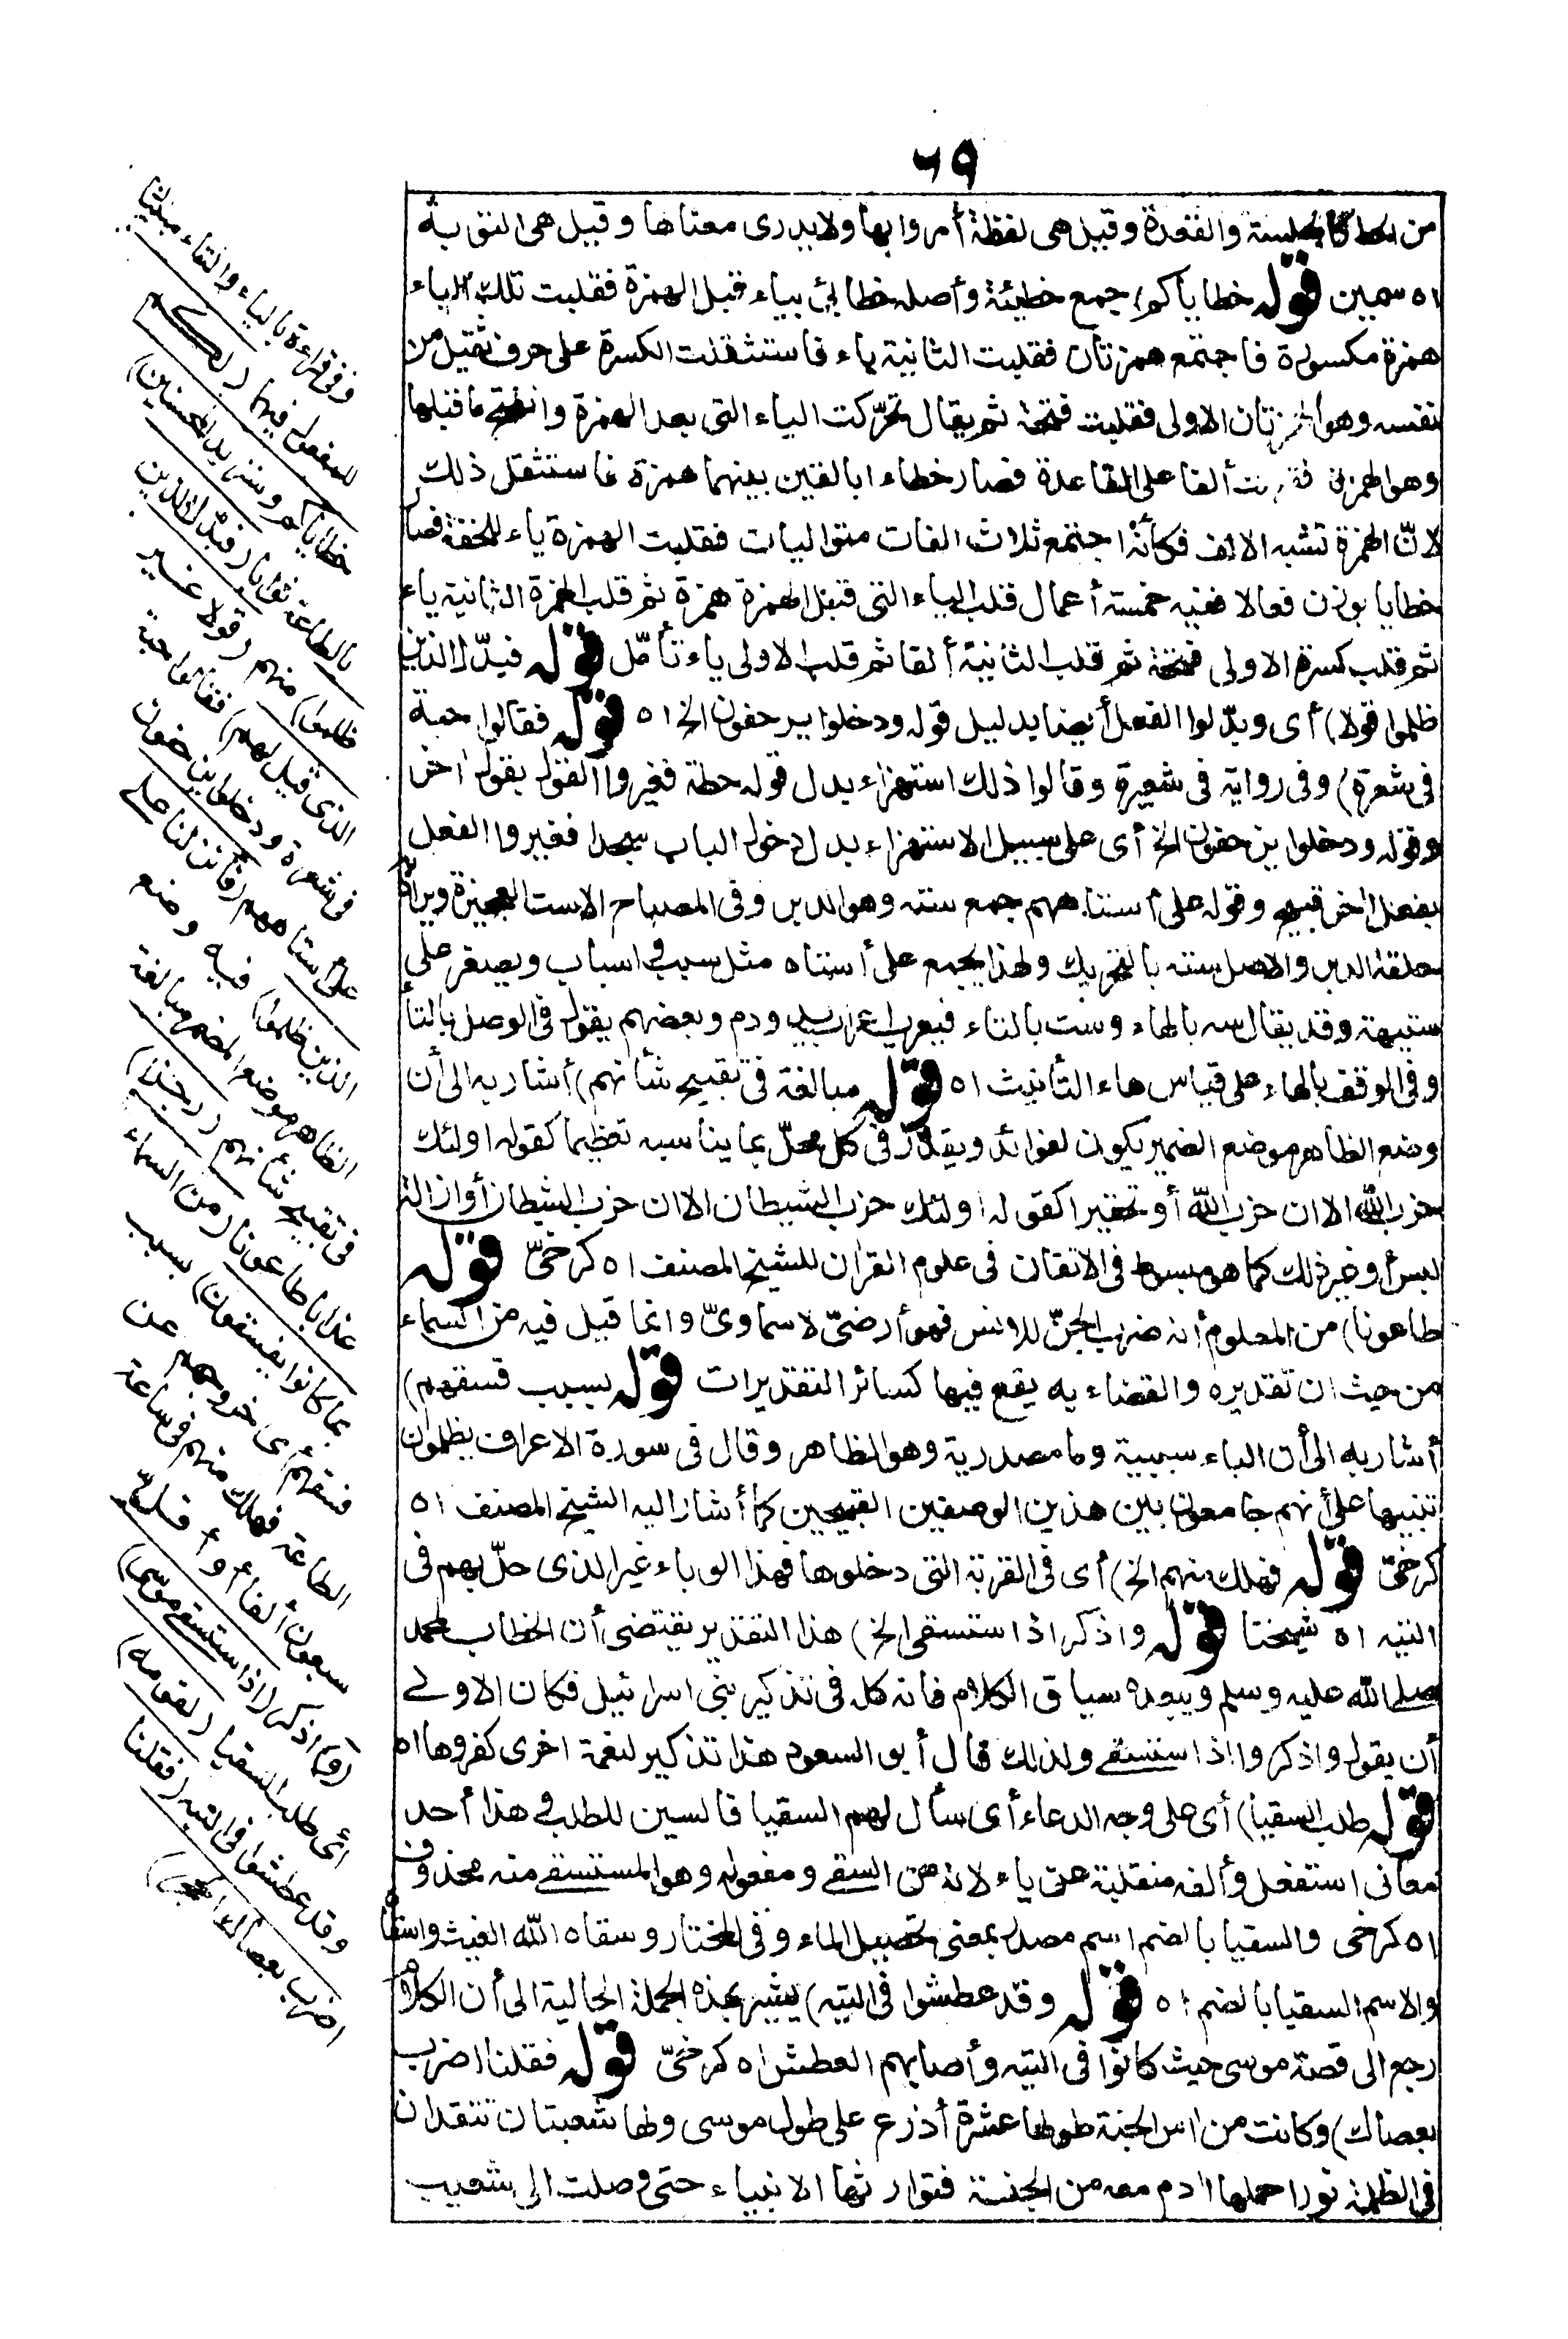 ٦٩
من الحط كالجلسة والقعدة وقيل هى لفظة أمروا بها ولا يدرى معناها وقيل هى التوبة
اه سمين قوله خطاياكم) جمع خطيئة وأصله خطايئ بياء قبل الهمزة فقلبت تلك الياء
همزة مكسورة فاجتمع همزتان فقلبت الثانية ياء فاستثقلت الكسرة على حرف ثقيل من
نفسه وهو الهمزتان الاولى فقلبت فتحة ثم يقال تحرّكت الياء التى بعد الهمزة وانفتح ماقبلها
وهو الهمزة فقلبت ألفا على القاعدة فصار خطاءا بالفين بينهما همزة فاستثقل ذلك
لانّ الهمزة تشبه الالف فكأنه اجتمع ثلاث الفات متواليات فقلبت الهمزة ياء للخفة فصار
خطايا بوزن فعالا ففيه خمسة أعمال قلب الياء التى قبل الهمزة همزة ثم قلب الهمزة الثانية ياء
ثم قلب كسرة الاولى فتحة ثم قلب الثانية ألفا ثم قلب الاولى ياء تأمّل قوله فبدّل الذين
ظلموا قولا) أى وبدّلوا الفعل أيضا بدليل قوله ودخلوا يزحفون الخ اه قوله فقالوا حبة
فى شعرة) وفى رواية فى شعيرة وقالوا ذلك استهزاء بدل قوله حطة فغيروا القول بقول اخر
وقوله ودخلوا يزحفون الخ أى على سبيل الاستهزاء بدل دخول الباب سجدا فغيروا الفعل
بفعل اخر قبيح وقوله على أستاههم جمع سته وهو الدبر وفى المصباح الاست العجيزة ويراد به
حلقة الدبر والاصل سته بالتحريك ولهذا يجمع على أستاه مثل سبب واسباب ويصغر على
ستيهة وقد يقال سه بالهاء وست بالتاء فيعرب اعراب يد ودم وبعضهم يقول فى الوصل بالتاء
وفى الوقف بالهاء على قياس هاء التأنيث اه قوله مبالغة فى تقبيح شأنهم) أشار به الى أن
وضع الظاهر موضع الضمير يكون لفوائد ويقدّر فى كل محلّ بما يناسبه تعظيما كقوله اولئك
حزب الله الا ان حزب الله أو تحقيرا كقوله اولئك حزب الشيطان الا ان حزب الشيطان أو ازالة
لبس أو غير ذلك كما هو مبسوط فى الاتقان فى علوم القران للشيخ المصنف اه كرخىّ قوله
طاعونا) من المعلوم أنه ضرب الجنّ للانس فهو أرضىّ لا سماوىّ وانما قيل فيه من السماء
من حيث ان تقديره والقضاء به يقع فيها كسائر التقديرات قوله بسبب فسقهم)
أشار به الى أن الباء سببية وما مصدرية وهو الظاهر وقال فى سورة الاعراف يظلمون
تنبيها على أنهم جامعون بين هذين الوصفين القبيحين كما أشار اليه الشيخ المصنف اه
كرخىّ قوله فهلك منهم الخ) أى فى القرية التى دخلوها فهذا الوباء غير الذى حلّ بهم فى
التيه اه شيخنا قوله واذكر اذا ستسقى الخ) هذا التقدير يقتضى أن الخطاب لمحمد
صلى الله عليه وسلم ويبعده سياق الكلام فانه كله فى تذكير بنى اسرائيل فكان الاولى
أن يقول واذكروا اذا ستسقى ولذلك قال أبو السعود هذا تذكير لنعمة اخرى كفروها اه
قوله طلب السقيا) أى على وجه الدعاء أى سأل لهم السقيا فالسين للطلب وهذا أحد
معانى استفعل وألفه منقلبة عن ياء لانه من السقى ومفعوله وهو المستسقى منه محذوف
اه كرخى والسقيا بالضم اسم مصدر بمعنى تحصيل الماء وفى المختار وسقاه الله الغيث واسقاه
والاسم السقيا بالضم اه قوله وقد عطشوا فى التيه) يشير بهذه الجملة الحالية الى أن الكلام
رجع الى قصة موسى حيث كانوا فى التيه وأصابهم العطش اه كرخىّ قوله فقلنا اضرب
بعصاك) وكانت من اس الجنة طولها عشرة أذرع على طول موسى ولها شعبتان تتقدان
فى الظلمة نورا حملها ادم معه من الجنة فتوارثها الانبياء حتى وصلت الى شعيب
وفى قراءة بالياء والتاء مبنيا
للمفعول فيهما (لكم
خطاياكم وسنزيد المحسنين)
بالطاعة ثوابا (فبدّل الذين
ظلموا) منهم (قولا غير
الذى قيل لهم) فقالوا حبة
فى شعرة ودخلوا يزحفون
على أستاههم (فأنزلنا على
الذين ظلموا) فيه وضع
الظاهر موضع المضمر مبالغة
فى تقبيح شأنهم (رجزا)
عذابا طاعونا (من السماء
بما كانوا يفسقون) بسبب
فسقهم أى خروجهم عن
الطاعة فهلك منهم فى ساعة
سبعون ألفا أو أقل
(و) اذكر (اذا ستسقى موسى)
أى طلب السقيا (لقومه)
وقد عطشوا فى التيه (فقلنا
اضرب بعصاك الحجر)